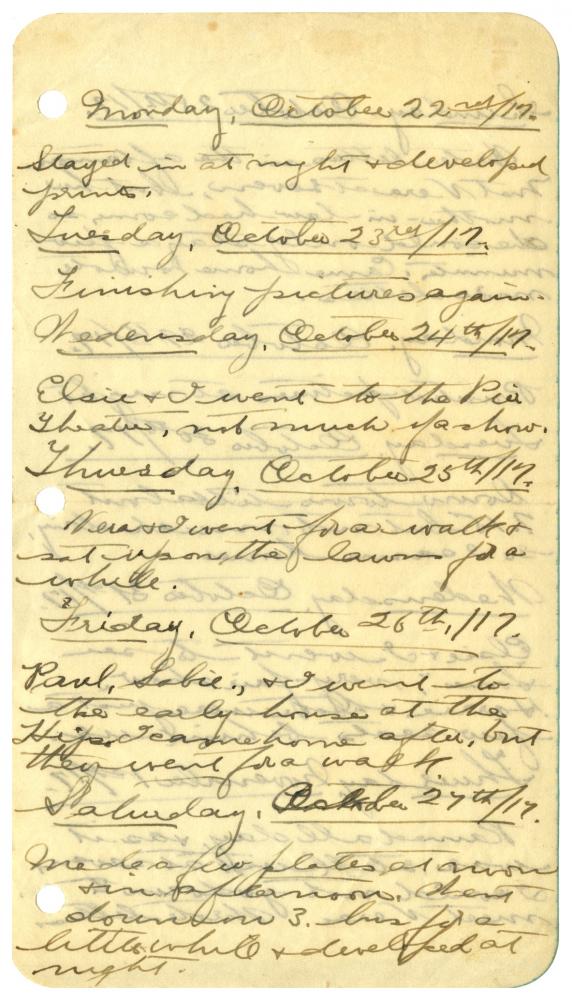 Monday, October 22nd/17.
Stayed in at night & developed
prints.
Tuesday, October 23rd/17.
Finishing pictures again.
Wedensday, October 24th/17.
Elsie & I went to the Pic
Theatre, not much of a show.
Thursday, October 25th/17.
Vera & I went for a walk &
sat upon the lawns for a
while.
Friday, October 26th,/17.
Paul, Sabie., & I went to
the early house at the
Hip. I came home after, but
they went for a walk
Saturday, October 27th/17.
Made a few plates at noon
& in afternoon. Went
down on 3. bus for a
little while & developed at
night.